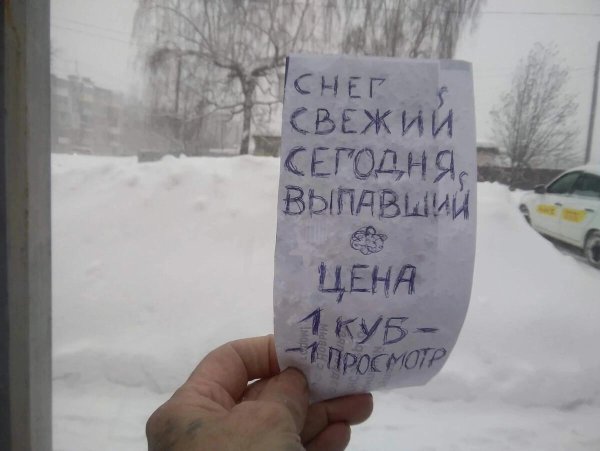 СНЕГ
СВЕЖИЙ
СЕГОДНЯ,
ВЫПАВШИЙ
ЦЕНА
1 КУБ-
-1 ПРОСМОТР